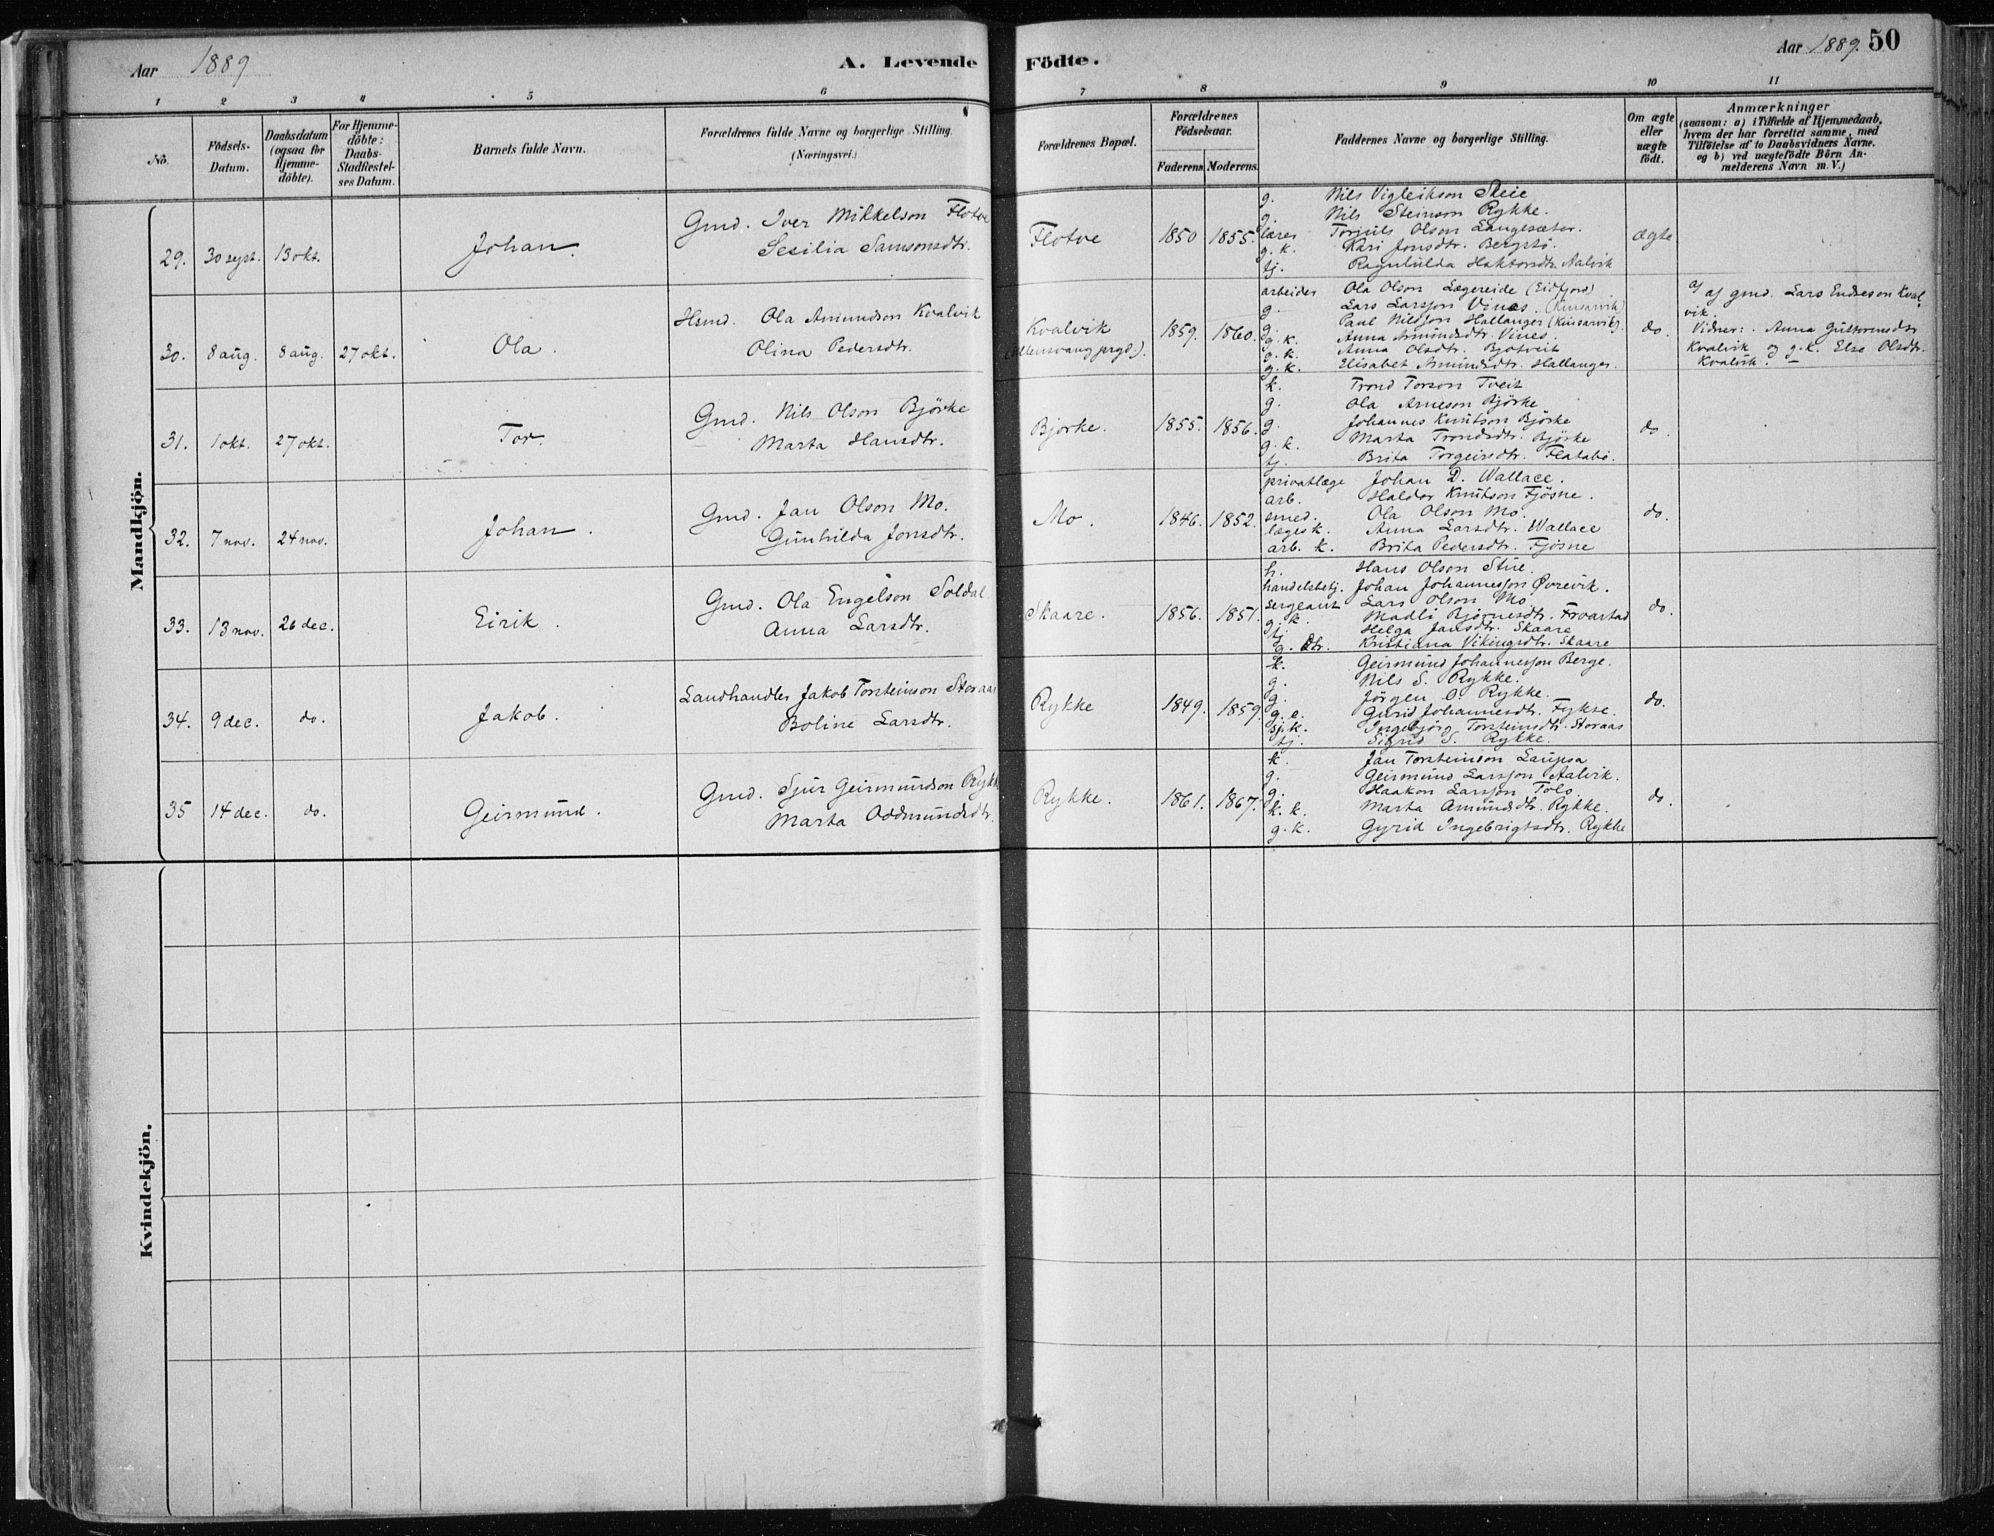 Aar 1889
A. Levende Födte.
Aar 1889. 50
1 2 3 4 5 6 7 8 9 10 11
No.
Födsels-
Datum.
Daabsdatum
(ogsaa for
Hjemme-
döbte).
For Hjemme-
döbte:
Daabs-
Stadfæstel-
ses Datum.
Barnets fulde Navn.
Forældrenes fulde Navne og borgerlige Stilling.
(Næringsvei.)
Forældrenes Bopæl.
Forældrenes
Födselsaar.
Faderens Moderens.
Faddernes Navne og borgerlige Stilling.
Om ægte
eller
uægte
födt.
Anmærkninger
(saasom: a) i Tilfælde af Hjemmedaab,
hvem der har forrettet samme, med
Tilföielse af to Daabsvidners Navne.
og b) ved uægtefödte Börn An-
melderens Navn m. V.)
Mandkjön.
29. 30 sept. 13 okt. Johan.
Gmd. Iver Mikkelson Flotve
Sesilia Samsonsdtr.
Flotve 1850 1855.
g. Nils Vigleikson Steie
g. Nils Steinson Rykke.
lærer Torjuls Olson Langesæter.
g. k. Kari Jonsdtr. Bergstö.
tj. Ragnhilda Haktorsdtr. Aalvik
ægte
30. 8 aug. 8 aug. 27 okt. Ola.
Hsmd. Ola Amundson Kvalvik
Olina Pedersdtr.
Kvalvik
(Ullensvang prgd.).
1859. 1860.
arbeider Ola Olson Lægereide (Eidfjord)
g. Lars Larsson Vines. (Kinsarvik)
g. Paul Nilsson Hallanger (Kinsarvik).
g. k. Anna Amundsdtr. Vines.
g. k. Anna Olsdtr. Bjotveit
g. k. Elisabet Amundsdtr. Hallanger.
do.
a/ af gmd. Lars Endreson Kval
vik.
Vidner: Anna Guttormsdtr
Kvalvik og g. k. Else Olsdtr.
Kvalvik.
31. 1 okt. 27 okt. Tor.
Gmd. Nils Olson Björke
Marta Hansdtr.
Bjorke. 1855. 1856.
k. Trond Torson Tveit
g. Ola Arneson Björke
g. Johannes Knutson Björke
g. k. Marta Trondsdtr. Björke
tj. Brita Torgeirsdtr. Flatabö.
do.
32. 7 nov. 24 nov. Johan.
Gmd. Jan Olson Mo.
Gunhilda Jonsdtr.
Mo. 1846. 1852.
privatlæge Johan D. Wallace.
arb. Haldor Knutson Fjösne.
smed. Ola Olson Mo.
lægesk. Anna Larsdtr. Wallace
arb. k. Brita Pedersdtr. Fjösne
do.
33. 13 nov. 26 dec. Eirik.
Gmd. Ola Engelson Soldal
Anna Larsdtr.
Skaare. 1856. 1851.
h. Hans Olson Stue.
handelsbetj. Johan Johannesson Øvrevik.
sergeant Lars Olson Mo.
g. k. Madli Bjornesdtr. Froastad
tj. Helga Jansdtr. Skaare
g. dtr. Kristiana Vikingsdtr. Skaare
do.
34. 9 dec. do. Jakob.
Landhandler Jakob Torsteinson Storaas
Boline Larsdtr.
Rykke 1849. 1859.
k. Geirmund Johannesson Berge.
g. Nils S. Rykke.
g. Jörgen O. Rykke.
g. e. Gurid Johannesdtr. Fykse.
sj. k. Ingebjörg Torsteinsdtr. Storaas
tj. Sigrid S. Rykke.
do.
35 14 dec. do. Geirmund.
Gmd. Sjur Geirmundson Rykke
Marta Oddmundsdtr.
Rykke. 1861. 1867.
k. Jan Torsteinson Laupsa
g. Geirmund Larsson Aalvik.
g. Haakon Larsson Tolo.
k. k. Marta Amundsdtr. Rykke.
g. k. Gyrid Ingebrigtsdtr. Rykke
do.
Kvindekjön.